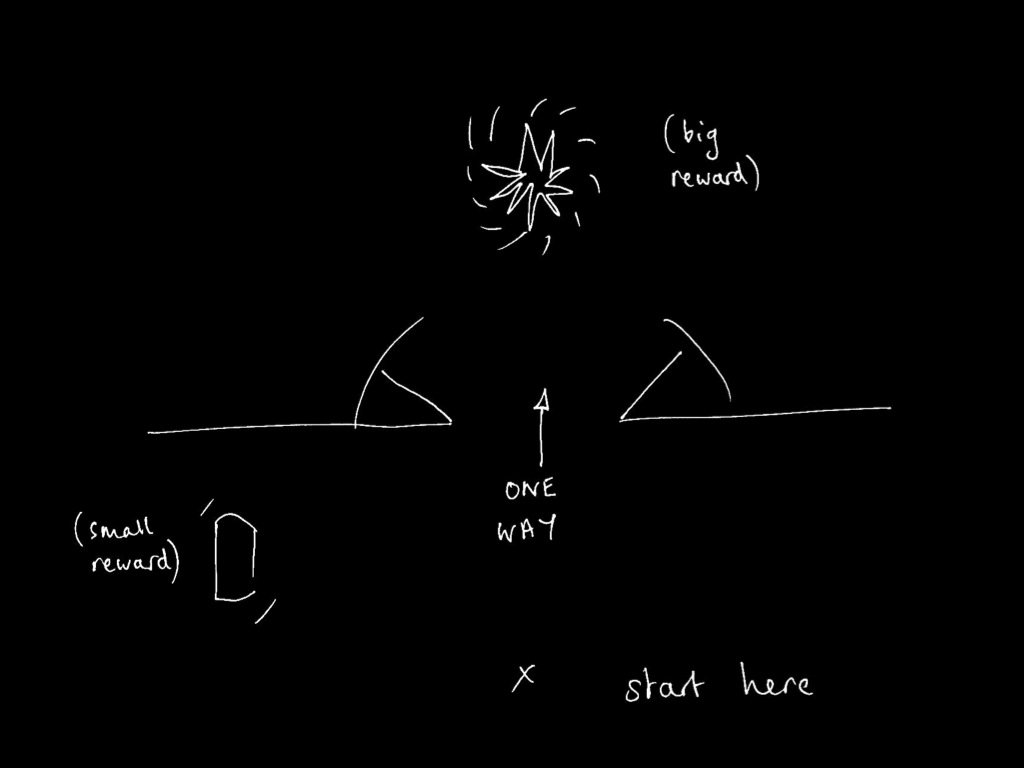 (big
reward)
ONE
WAY
(small
reward)
x
start here